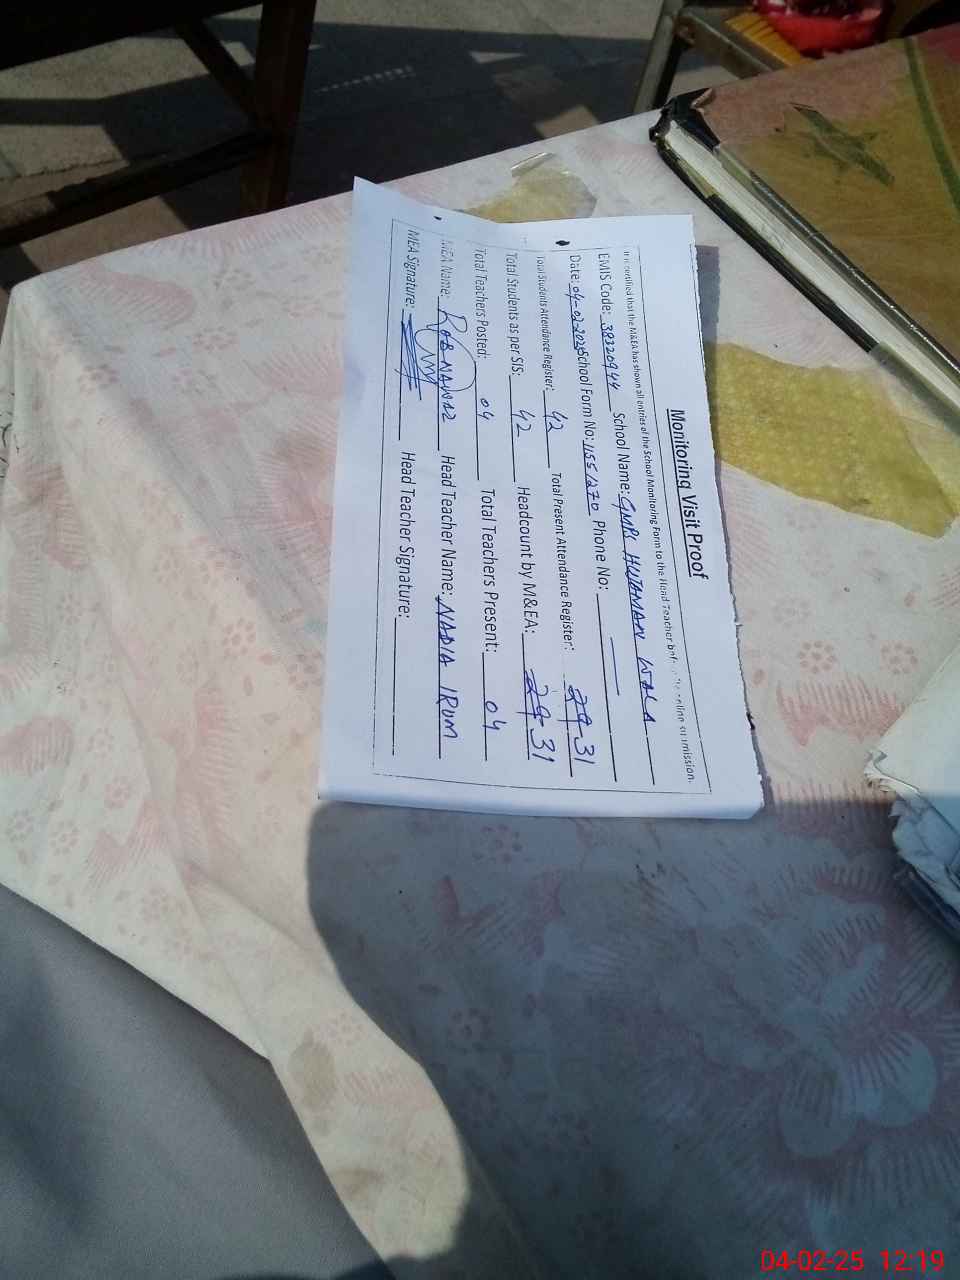 Monitoring Visit Proof
It is certified that the M&EA has shown all entries of the School Monitoring Form to the Head Teacher before online submission.
EMIS Code: 38320944 School Name: GMPS HUTAMAN WALA
Date: 04-02-2025 School Form No: 11551270 Phone No: —
Total Students Attendance Register: 42 Total Present Attendance Register: 29 31
Total Students as per SIS: 42 Headcount by M&EA: 29 31
Total Teachers Posted: 04 Total Teachers Present: 04
MEA Name: RABNAWAZ Head Teacher Name: NADIA IRUM
MEA Signature: Head Teacher Signature:
04-02-25 12:19